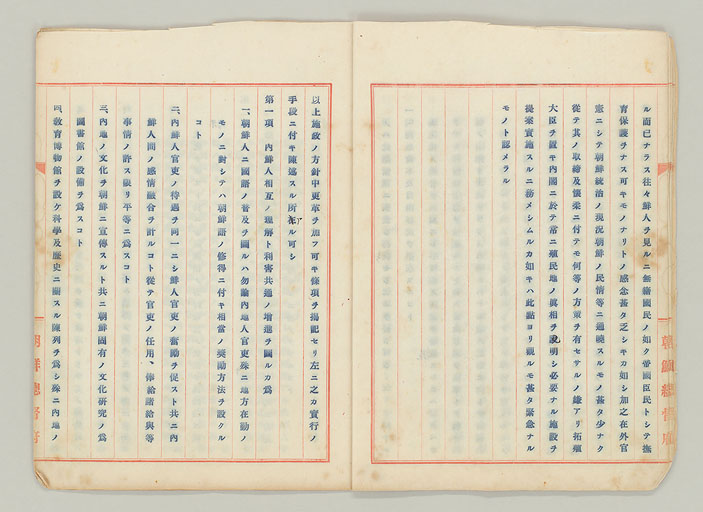 ル而已ナラス往々鮮人ヲ見ルニ無籍國民ノ如ク帝國臣民トシテ撫
育保護ヲナス可キモノナリトノ感念甚タ乏シキカ如シ加之在外官
憲ニシテ朝鮮統治ノ現況朝鮮ノ民情等ニ通曉スルモノ甚タ少ナク
從テ其ノ取締及懷柔ニ付テモ何等ノ方策ヲ有セサルノ嫌アリ拓殖
大臣ヲ置キ内閣ニ於テ常ニ殖民地ノ眞相ヲ說明シ必要ナル施設ヲ
提案實施スルニ務メシムルカ如キハ此點ヨリ觀ルモ甚タ緊急ナル
モノト認メラル
以上施政ノ方針中更革ヲ加フ可キ條項ヲ揭記セリ左ニ之カ實行ノ
手段ニ付キ陳述スル所アル可シ
第一項 内鮮人相互ノ理解ト利害共通ノ增進ヲ圖ルカ爲
一、朝鮮人ニ國語ノ普及ヲ圖ルハ勿論内地人官吏殊ニ地方在勤ノ
モノニ對シテハ朝鮮語ノ修得ニ付キ相當ノ奬勵方法ヲ設クル
コト
二、内鮮人官吏ノ待遇ヲ同一ニシ鮮人官吏ノ奮勵ヲ促スト共ニ内
鮮人間ノ感情融合ヲ計ルコト從テ官吏ノ任用、俸給諸給與等
事情ノ許ス限リ平等ニ爲スコト
三、内地ノ文化ヲ朝鮮ニ宣傳スルト共ニ朝鮮固有ノ文化研究ノ爲
圖書館ノ設備ヲ爲スコト
四、教育博物館ヲ設ケ科學及歷史ニ關スル陳列ヲ爲シ殊ニ内地ノ
朝鮮總督府
朝鮮總督府